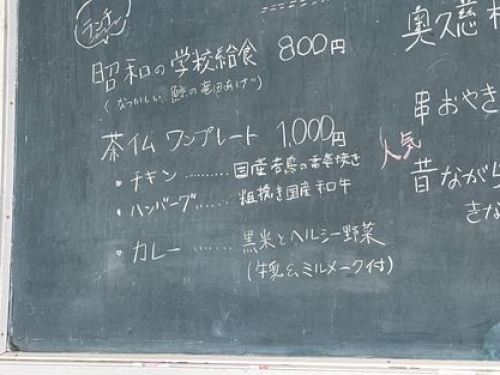 ランチ
昭和の学校給食 800円
(なつかしい 鯨の竜田あげ)
茶仏 ワンプレート 1,000円
・チキン ……… 国産若鳥の香草焼き
・ハンバーグ…… 粗挽き国産和牛
・カレー …… 黒米とヘルシー野菜
(牛乳&ミルメーク付)
奥久慈
串おやき
人気
昔ながら
きな